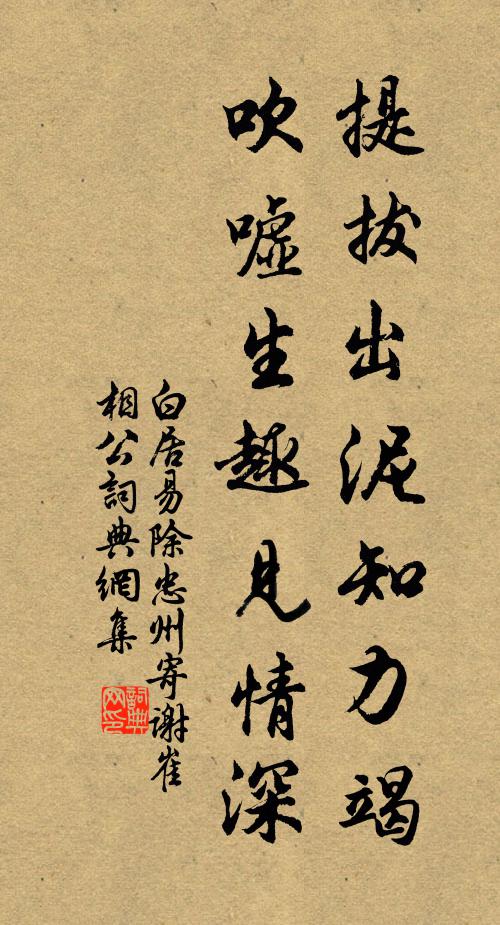 提拔出泥知力竭
吹噓生翅見情深
白居易除忠州寄謝崔
相公詞典網集
詞典
网印